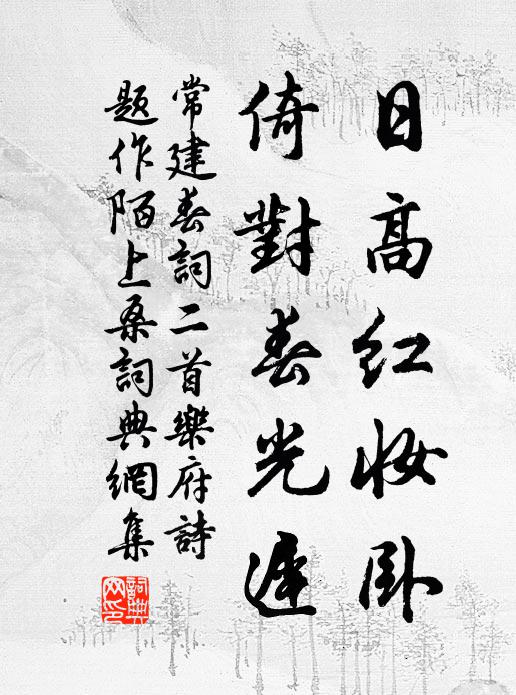 日高红妆卧
倚對春光遲
常建春詞二首樂府詩
题作陌上桑詞典網集
詞典網印